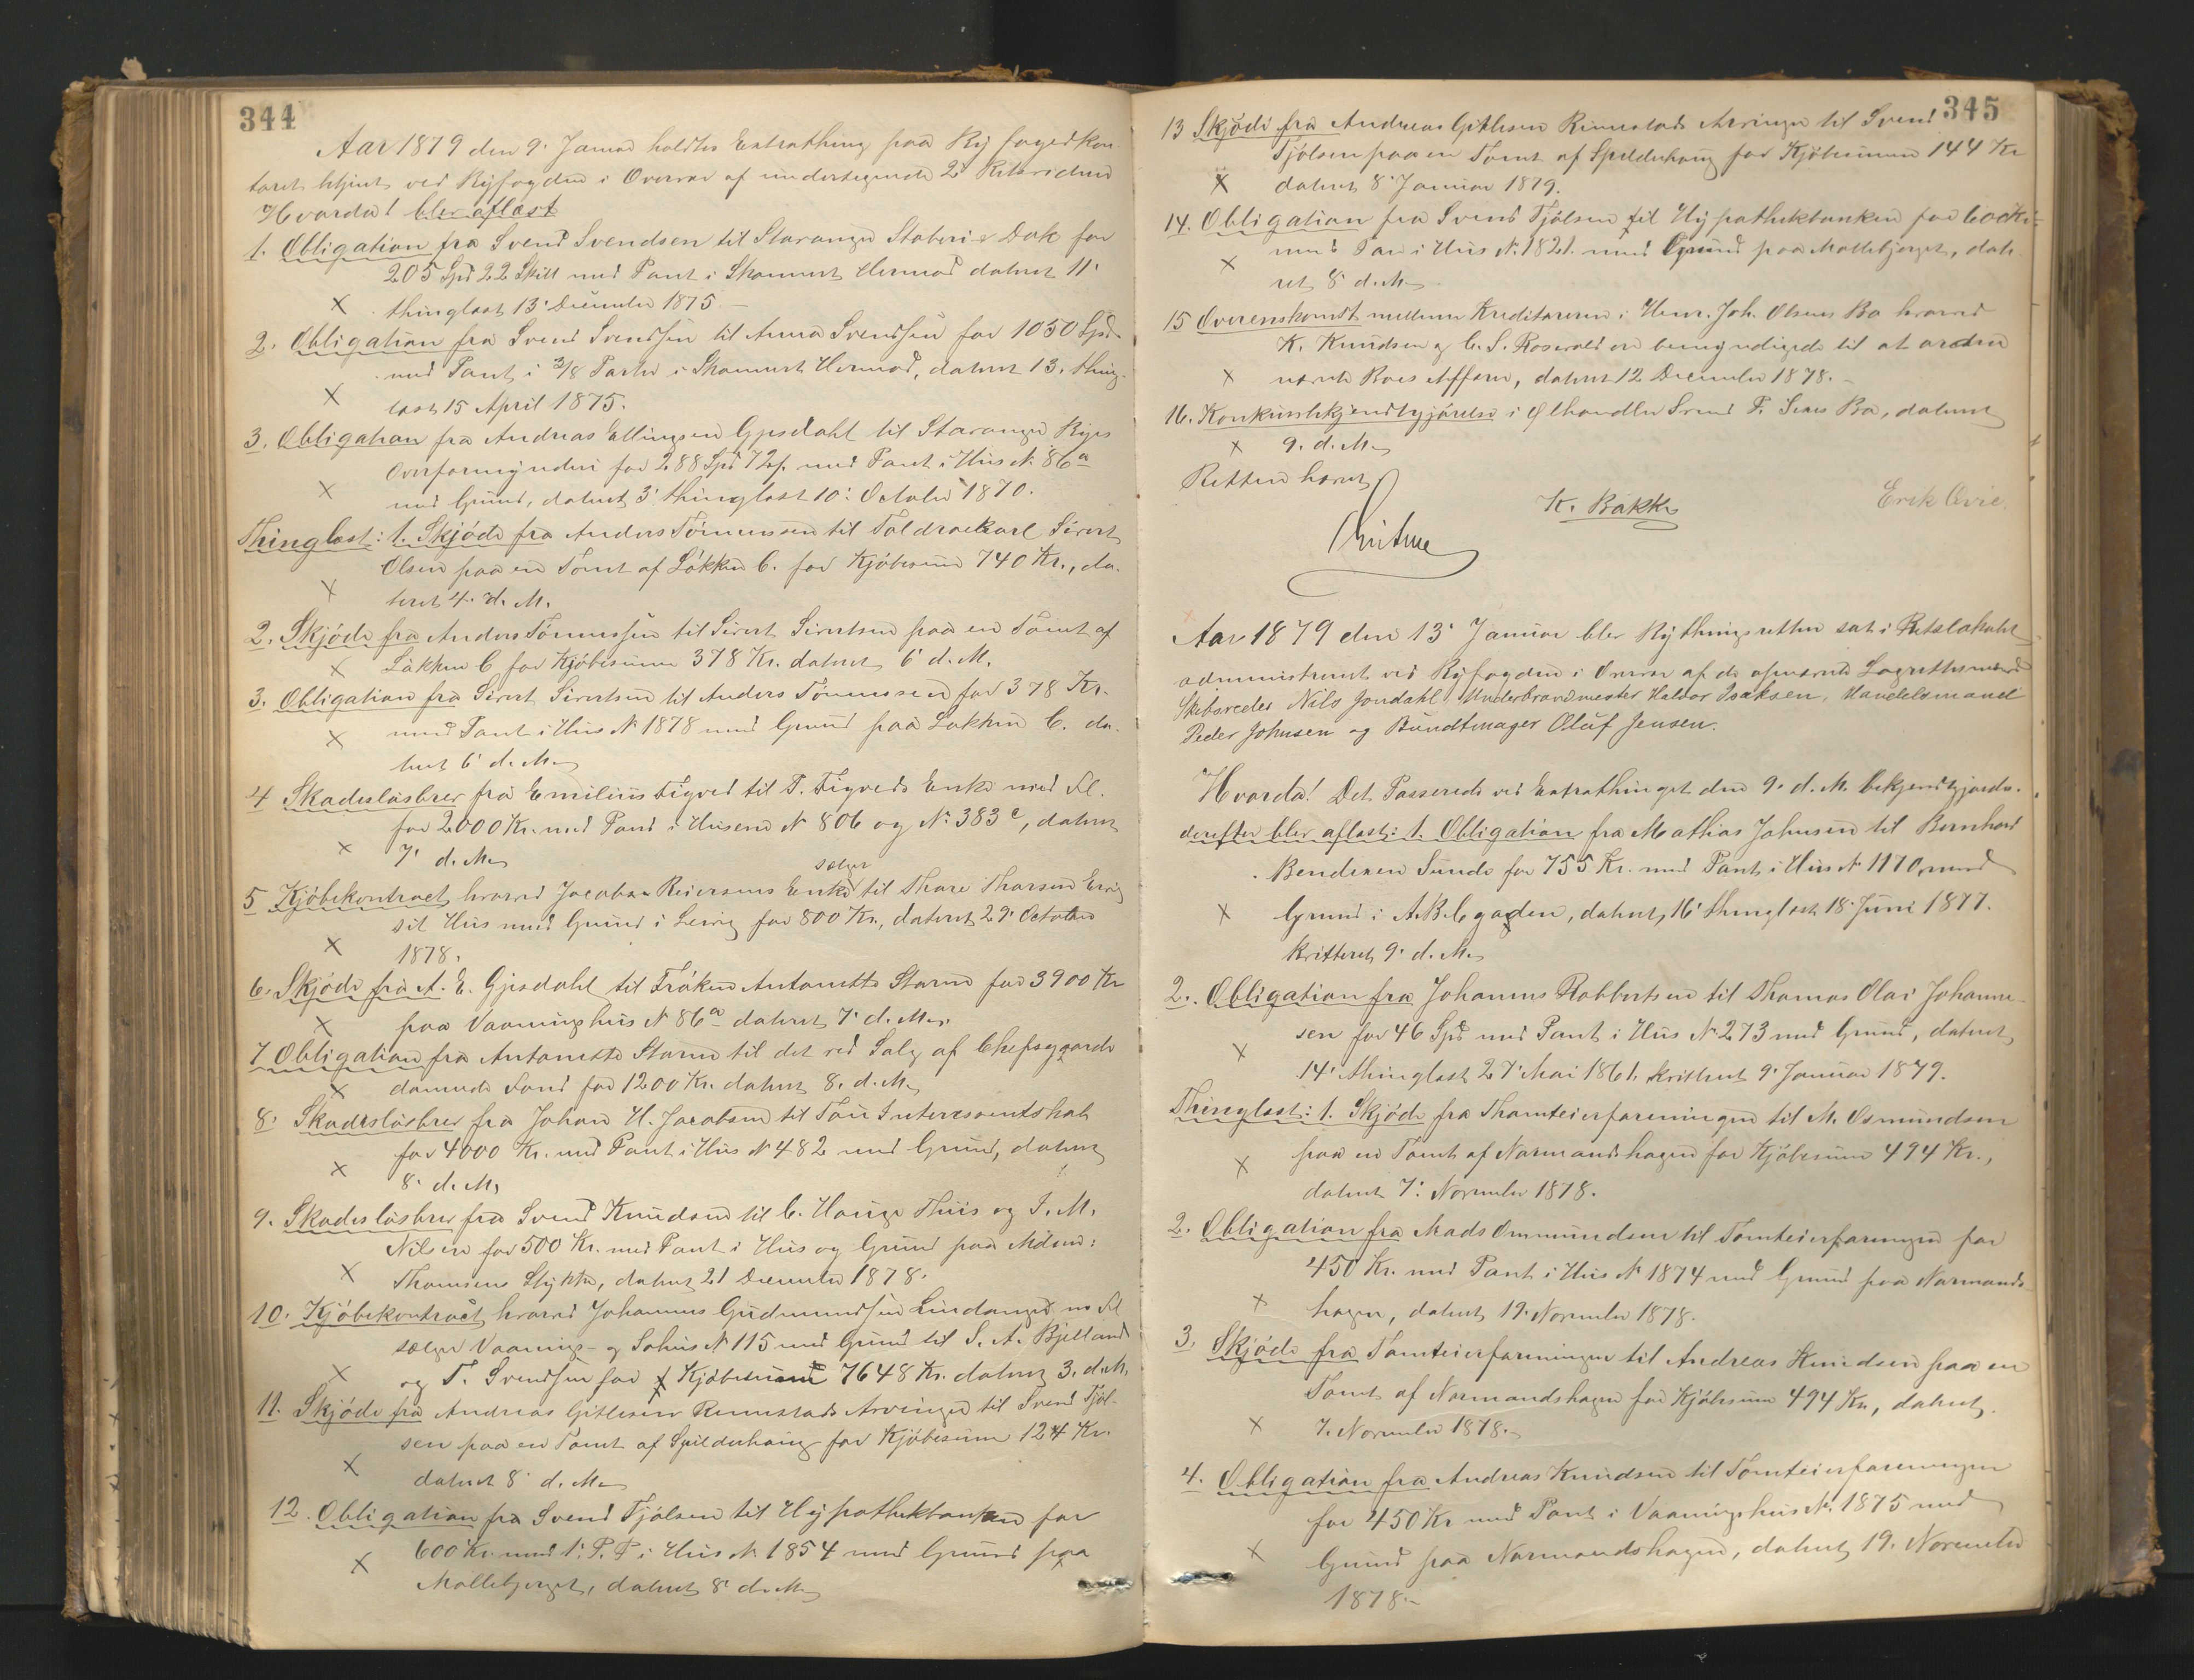 344
Aar 1879 den 9' Januar holdtes Extrathing paa Byfogedkon-
toret betjent ved Byfogden i Overvær af undertegnede 2de Retsvidner
Hvorda! blev aflæst
1. Obligation fra Svend Svendsen til Stavanger Støberi & Dok for
205 Spd 22 Skill med Pant i Skonnert Hermod dateret 11'
X thinglæst 13' December 1875.-
2. Obligation fra Svend Svendsen til Anna Svendsen for 1050 Spd
med Pant i 3/8 Parter i Skonnert Hermod, dateret 13. thing-
X læst 15 April 1875.
3. Obligation fra Andreas Ellingsen Gjesdahl til Stavanger Byes
Overformynderi for 288 Spd 72 s. med Pant i Hus No 86a
X med Grund, dateret 3' thinglæst 10' October 1870.
Thinglæst: 1. Skjøde fra Anders Tønnessen til Toldroerkarl Sivert
Olsen paa en Tomt af Løkken C. for Kjøbesum 740 Kr., da-
X teret 4. d. M.
2. Skjøde fra Anders Tønnessen til Sivert Sivertsen paa en Tomt af
X Løkken C for Kjøbesum 378 Kr. dateret 6' d. M.
3. Obligation fra Sivert Sivertsen til Anders Tønnessen for 378 Kr.
X med Pant i Hus No 1878 med Grund paa Løkken C. da-
teret 6' d. M.
4 Skadesløsbrev fra Emilius Figved til T. Figveds Enke med Fl.
for 2000 Kr. med Pant i Husene No 806 og No 383c, dateret
X 7' d. M.
sælger
5 Kjøbekontract hvorved Jacob Reiersens Enke til Thore Thorsen
sit Hus med Grund i for 800 Kr., dateret 29' October
X 1878.
6. Skjøde fra A. E. Gjesdahl til Frøken Antonette Storm for 3900 Kr
X paa Vaaningshus No 86a dateret 7' d. M.
7 Obligation fra Antonette Storm til det ved Salg af Chefsgaarde
X dannede Fond for 1200 Kr. dateret 8. d. M.
8' Skadesløsbrev fra Johan H. Jacobsen til Tou Interessentskab
for 4000 Kr. med Pant i Hus No 482 med Grund, dateret
X 8' d. M.
9. Skadesløsbrev fra Svend Knudsen til C. Hauge Thiis og J. M.
Nilsen for 500 Kr. med Pant i Hus og Grund paa
X Thomsens Stykke, dateret 21 December 1878.
10. Kjøbekontract hvorved Johannes Gudmundsen Lindanger m Fl
sælger Vaanings- og Søhus No 115 med Grund til S. A. Bjelland
X og T. Svendsen for Kjøbesum 7648 Kr. dateret 3. d. M.
11. Skjøde fra Andreas Gitlesen Rimestads Arvinger til Svend Tjøl-
sen paa en Tomt af Spilderhaug for Kjøbesum 124 Kr.
X dateret 8' d. M.
12. Obligation fra Svend Tjølsen til Hypothekbanken for
600 Kr. med 1' P. P. i Hus No 1854 med Grund paa
X Møllebjerget, dateret 8' d. M.
345
13 Skjøde fra Andreas Gitlesen Rimestads Arvinger til Svend
Tjølsen paa en Tomt af Spilderhaug for Kjøbesum 144 Kr
X dateret 8' Januar 1879.
14. Obligation fra Svend Tjølsen til Hypothekbanken for 600 Kr
med Pan i Hus No 1821. med Grund paa Møllebjerget, date-
X ret 8' d. M.
15 Overenskomst mellem Kreditorerne i Henr. Joh. Olsens Bo hvorved
K. Knudsen og C. S. Rosevald ere bemyndigede til at ordne
X nævnte Boes Affære, dateret 12 December 1878.-
16. Konkursbekjendtgjørelse i Ølhandler Svend T. Bo, dateret
X 9. d. M.
Retten hævet
K. Bakke
Erik Ovie.
Aar 1879 den 13' Januar blev Bythingsretten sat i Retslokalet
administreret ved Byfogden i Overvær af de opnævnte Lagrettesmænd
Skibsreder Nils Jondahl, Underbrandmester Halvor Isaksen, Handelsmand
Peder Johnsen og Bundtmager Oluf Jensen.
Hvorda! Det Passerede ved Extrathinget den 9. d. M. bekjendtgjordes.
derefter blev aflæst: 1. Obligation fra Mathias Johnsen til Bernhard
Bendixen Sunde for 755 Kr. med Pant i Hus No 1170 med
X Grund i A.B.C gaden, dateret 16' thinglæst 18' Juni 1877.
kvitteret 9' d. M.
2. Obligation fra Johannes Robbertsen til Thomas Olai Johanne-
sen for 46 Spd med Pant i Hus No 273 med Grund, dateret
X 14' thinglæst 27' Mai 1861. kvitteret 9' Januar 1879.
Thinglæst: 1. Skjøde fra Thomteierforeningen til M. Osmundsen
paa en Tomt af Normandshagen for Kjøbesum 494 Kr.,
X dateret 7' November 1878.
2. Obligation fra Mads Ommundsen til Tomteierforeningen for
450 Kr. med Pant i Hus No 1874 med Grund paa Normands-
X hagen, dateret 19. November 1878.
3. Skjøde fra Tomteierforeningen til Andreas Knudsen paa en
Tomt af Normandshagen for Kjøbesum 494 Kr., dateret
X 7. November 1878.-
4. Obligation fra Andreas Knudsen til Tomteierforeningen
for 450 Kr med Pant i Vaaningshus No 1875 med
X Grund paa Normandshagen, dateret 19. November
1878.-